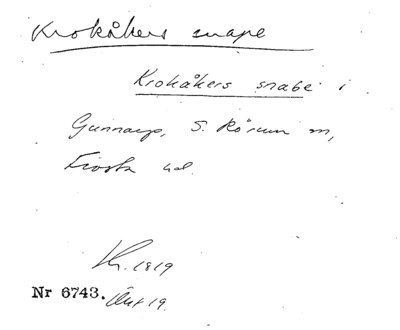 Krokåkers snape
Krokåkers snabe i
Gunnarp, S. Rörum m,
Frosta hd.
Kr. 1819
Nr 6743. Akt 19.